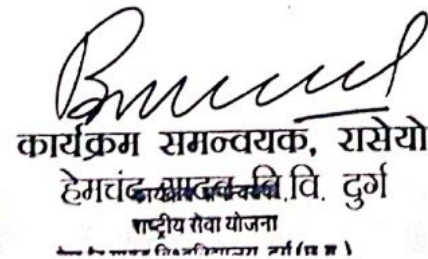 कार्यक्रम समन्वयक, रासेयो
हेमचंद यादव वि.वि. दुर्ग
राष्ट्रीय सेवा योजना